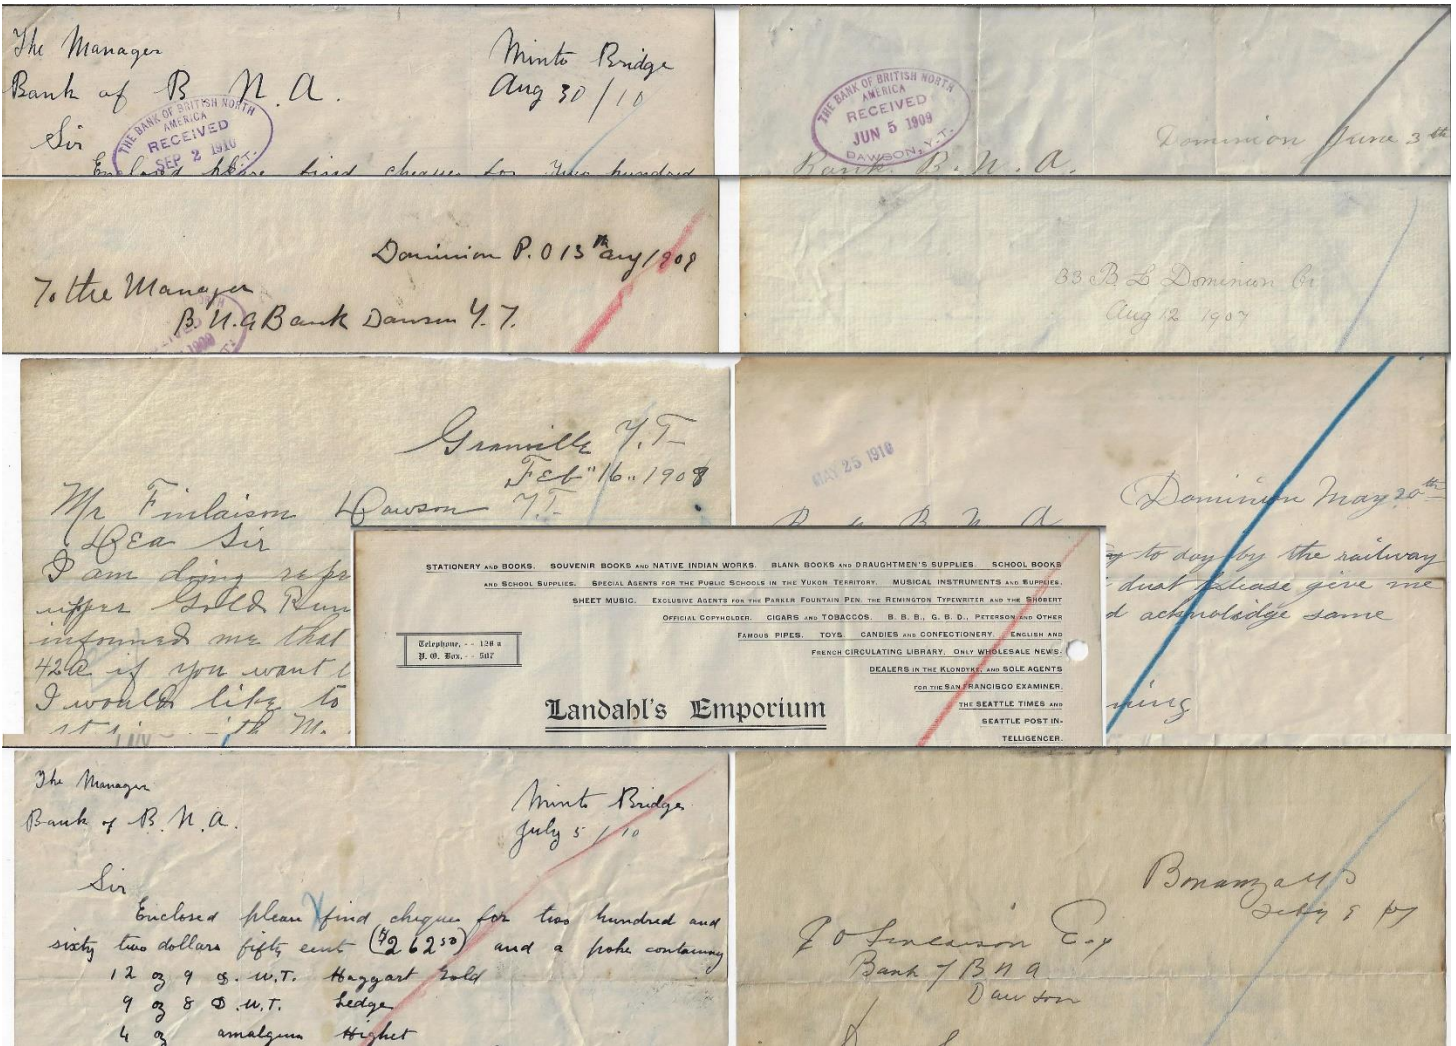 The Manager
Minto Bridge
Bank of B. N. A.
Aug 30 / 10
THE BANK OF BRITISH NORTH
AMERICA
RECEIVED
SEP 2 1910
Y.T.
Sir
Enclosed please find cheques for Two hundred
THE BANK OF BRITISH NORTH
AMERICA
RECEIVED
JUN 5 1909
DAWSON, Y.T.
Dominion June 3th
Bank. B. N. A.
Dominion P. O 13th Aug 1909
To the Manager
B. N. A Bank Dawson Y. T.
33 B. L Dominion Cr
Aug 12 1907
Granville Y.T.
Feb" 16.. 1908
Mr Finlaison Dawson Y.T.
Dea Sir
I am doing
upper Gold Run
informed me that
42 if you want
I would like to
MAY 25 1910
Dominion May 20th
B. N. A
to day by the railway
dust please give me
acknolidge same
STATIONERY AND BOOKS. SOUVENIR BOOKS AND NATIVE INDIAN WORKS. BLANK BOOKS AND DRAUGHTMEN'S SUPPLIES. SCHOOL BOOKS
AND SCHOOL SUPPLIES. SPECIAL AGENTS FOR THE PUBLIC SCHOOLS IN THE YUKON TERRITORY. MUSICAL INSTRUMENTS AND SUPPLIES.
SHEET MUSIC. EXCLUSIVE AGENTS FOR THE PARKER FOUNTAIN PEN, THE REMINGTON TYPEWRITER AND THE SHOBERT
OFFICIAL COPYHOLDER. CIGARS AND TOBACCOS. B. B. B., G. B. D., PETERSON AND OTHER
FAMOUS PIPES. TOYS. CANDIES AND CONFECTIONERY. ENGLISH AND
FRENCH CIRCULATING LIBRARY. ONLY WHOLESALE NEWS-
DEALERS IN THE KLONDYKE, AND SOLE AGENTS
FOR THE SAN FRANCISCO EXAMINER,
THE SEATTLE TIMES AND
SEATTLE POST IN-
TELLIGENCER.
Telephone, - - 128 a
P. O. Box, - - 507
Landahl's Emporium
The Manager
Minto Bridge
Bank of B. N. A.
July 5 / 10
Sir
Enclosed please find cheques for two hundred and
sixty two dollars fifty cent ($262 50) and a poke containing
12 oz 9 D. W.T. Haggart Gold
9 oz 8 D. W.T. Ledge
4 oz amalgum Highet
Bonanza
Esq
Bank of B N A
Dawson